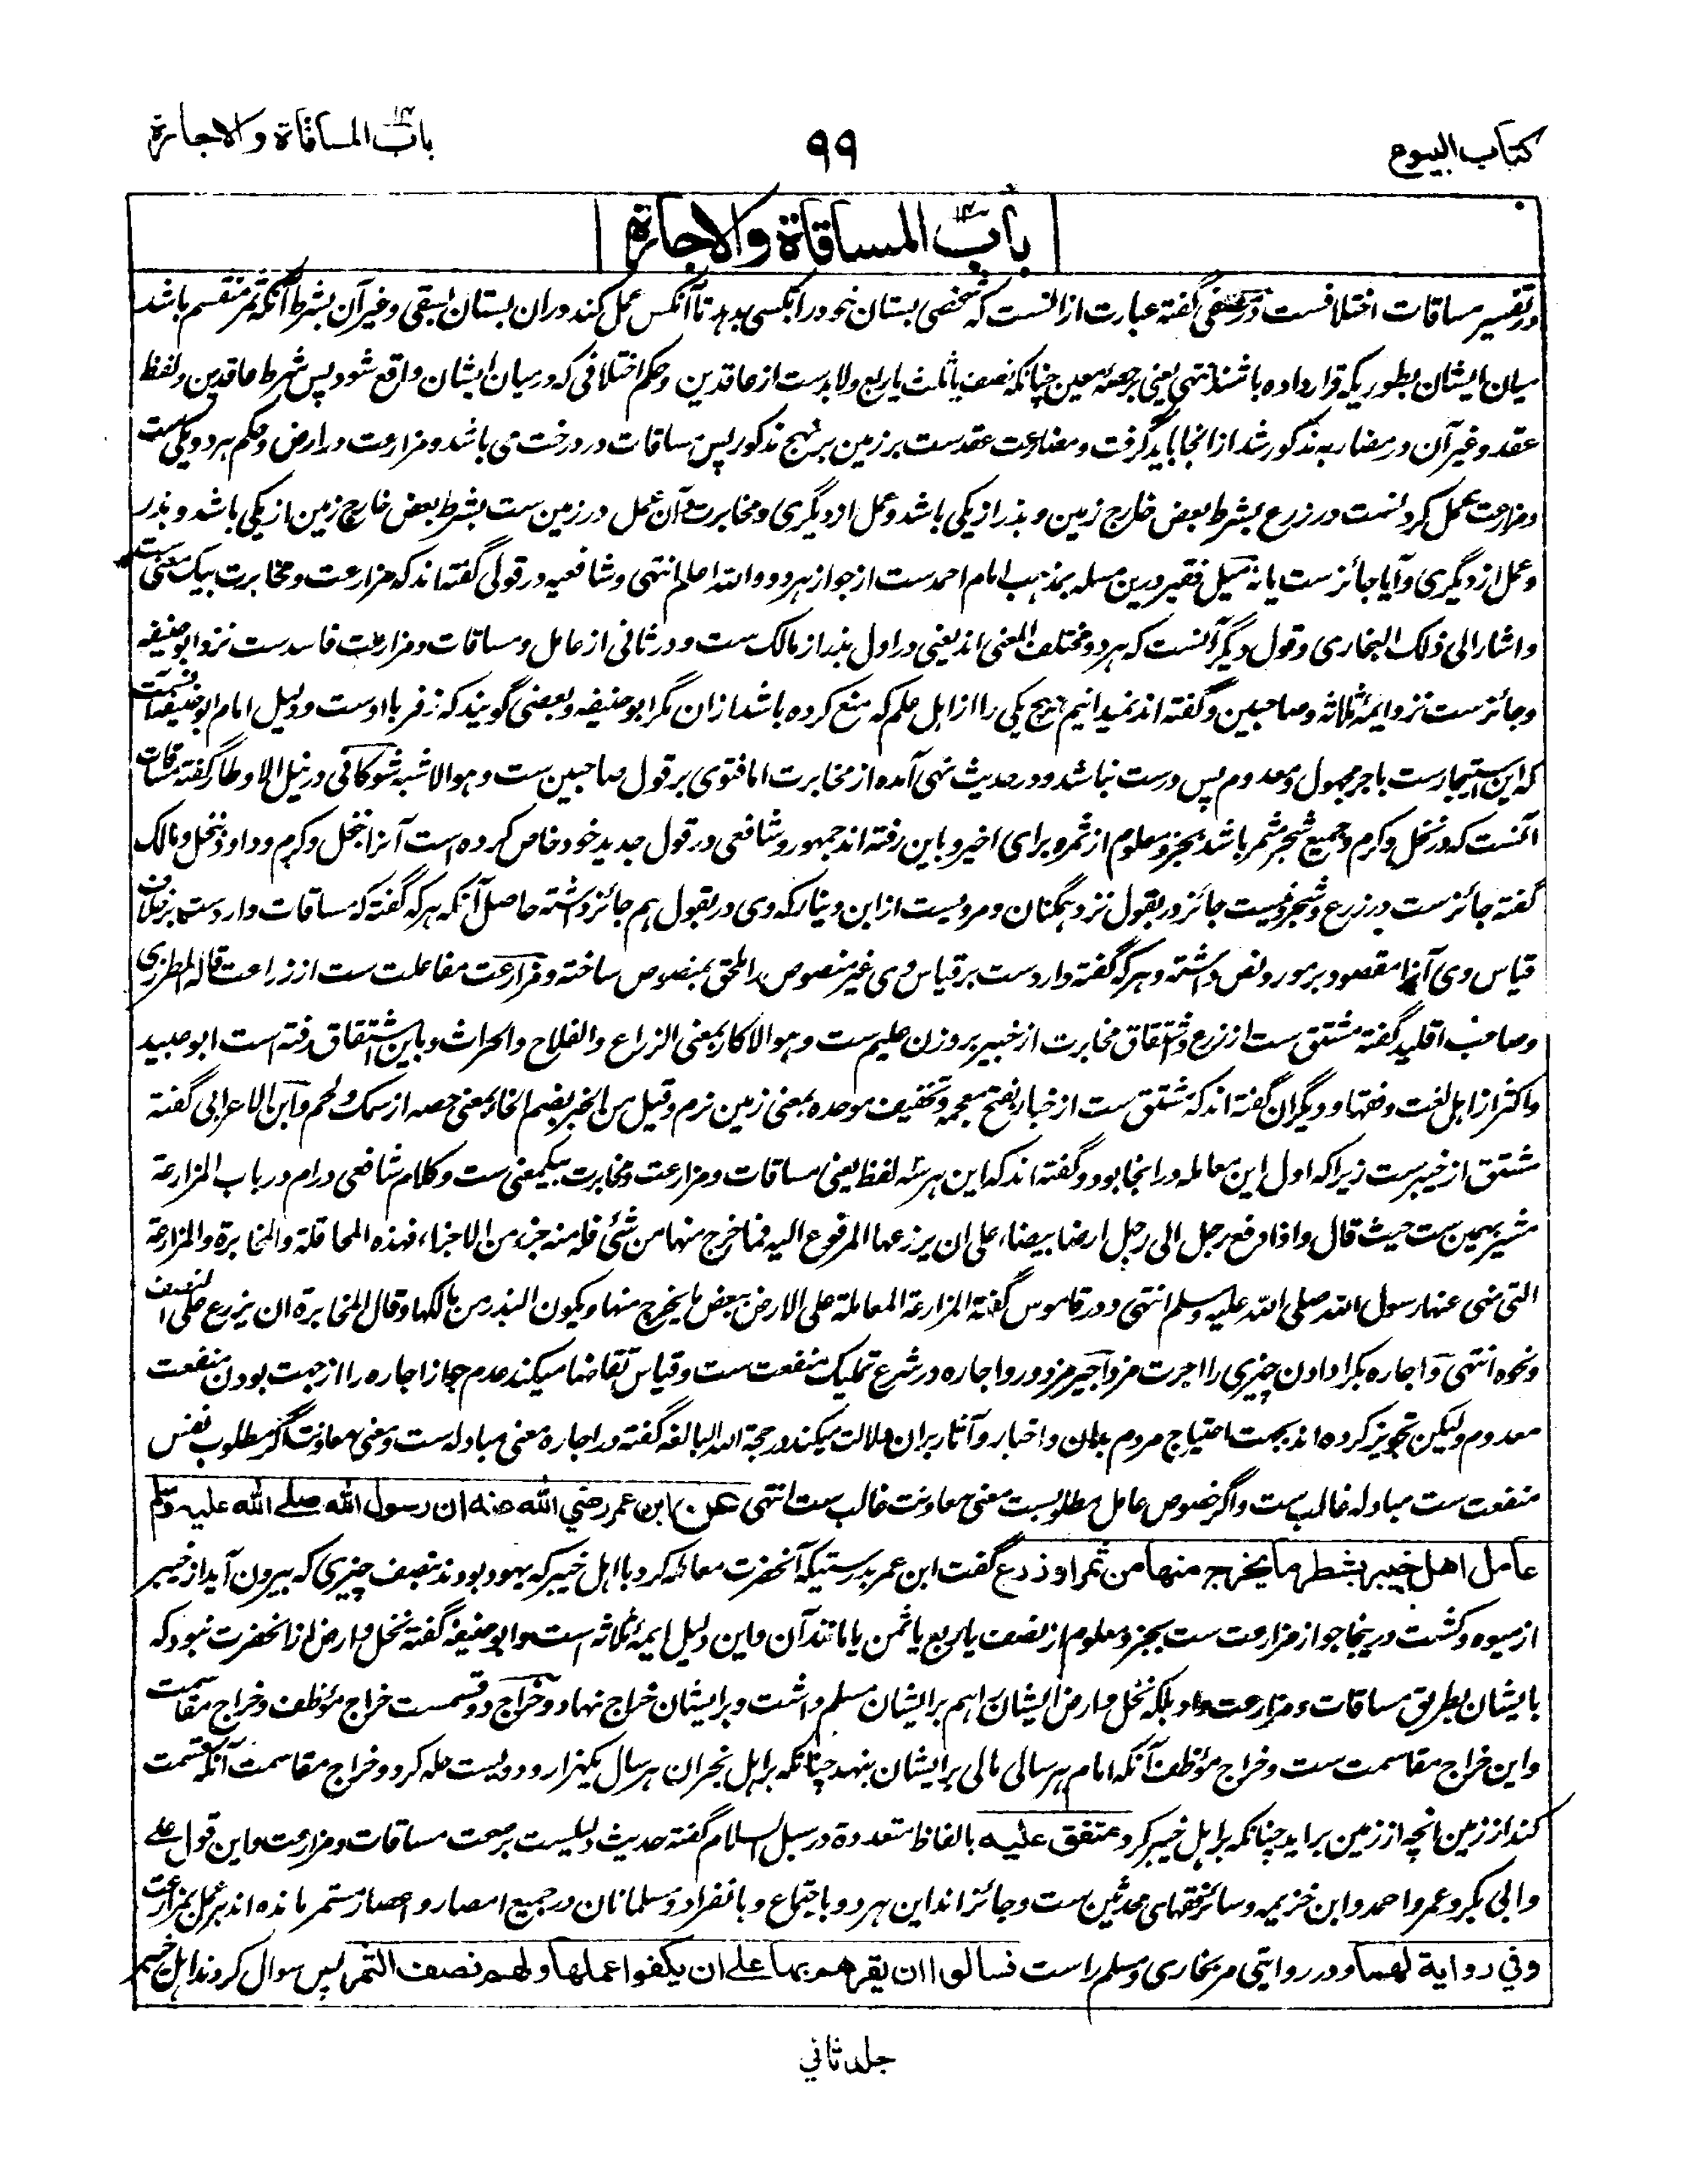 کتاب البیوع
۹۹
باب المساقاة والاجارة
باب المساقاة والاجارة
در تفسیر مساقات اختلافست در مصفی گفته عبارت ازانست که شخصی بستان خود را بکسی بدهد تا آنکس عمل کند دران بستان بسقی وغیر آن بشرط آنکه ثمر منقسم باشد
میان ایشان بطوریکه قرار داده باشند انتهی یعنی بر حصهٔ معین چنانکه نصف یا ثلث یا ربع ولا بدست از عاقدین وحکم اختلافی که در میان ایشان واقع شود پس شرط عاقدین ولفظ
عقد وغیر آن در مضاربه مذکور شد از انجا باید گرفت ومزارعت عقدست بر زمین بر نهج مذکور پس مساقات در درخت می باشد ومزارعت در ارض وحکم هر دو یکی ست
ومزارعت عمل کردنست در زرع بشرط بعض خارج زمین وبذر از یکی باشد وعمل از دیگری ومخابرت آن عمل در زمین ست بشرط بعض خارج زمین از یکی باشد وبذر
وعمل از دیگری وآیا جائزست یا نه میل فقیر درین مسله بمذهب امام احمدست از جواز هر دو والله اعلم انتهی وشافعیه در قولی گفته اند که مزارعت ومخابرت بیک معنی ست
واشار الی ذلک البخاری وقول دیگر آنست که هر دو مختلف المعنی اند یعنی در اول بذر از مالک ست ودر ثانی از عامل ومساقات ومزارعت فاسدست نزد ابوحنیفه
وجائزست نزد ایمهٔ ثلاثه وصاحبین وگفته اند نمیدانیم هیچ یکی را از اهل علم که منع کرده باشد ازان مگر ابوحنیفه وبعضی گویند که زفر با اوست ودلیل امام ابوحنیفه آنست
که این استیجارست باجر مجهول ومعدوم پس درست نباشد ودر حدیث نهی آمده از مخابرت اما فتوی بر قول صاحبین ست وهو الاشبه شوکانی در نیل الاوطار گفته مساقات
آنست که در نخل وکرم وجمیع شجر مثمر باشد بجزو معلوم از ثمره برای اخیر وباین رفته اند جمهور وشافعی در قول جدید خود خاص کرده است آنرا بنخل وکرم وداود بنخل ومالک
گفته جائزست در زرع وشجر ونیست جائز در بقول نزد همگنان ومرویست از ابن دینار که وی در بقول هم جائز داشته حاصل آنکه هر که گفته که مساقات واردست برخلاف
قیاس وی آنرا مقصود بر مورد نص داشته وهر که گفته واردست بر قیاس وی غیر منصوص را ملحق بمنصوص ساخته ومزارعت مفاعلت ست از زراعت قاله المطرزی
وصاحب اقلید گفته مشتق ست از زرع واشتقاق مخابرت از خبیر بر وزن علیم ست وهو الاکار بمعنی الزراع والفلاح والحراث وباین اشتقاق رفته است ابوعبید
واکثر از اهل لغت وفقها ودیگران گفته اند که مشتق ست از خبار بفتح معجمه وتخفیف موحده بمعنی زمین نرم وقیل من الخبر بضم الخاء بمعنی حصه از سمک ولحم وابن الاعرابی گفته
مشتق از خیبرست زیرا که اول این معامله در انجا بود وگفته اند که این هر سه لفظ یعنی مساقات ومزارعت ومخابرت بیکمعنی ست وکلام شافعی در ام در باب المزارعة
مشیر بهمین ست حیث قال واذا دفع رجل الی رجل ارضا بیضاء علی ان یزرعها المرفوع الیه فما خرج منها من شئ فله منه جزء من الاجزاء فهذه المحاقلة والمخابرة والمزارعة
التی نهی عنها رسول الله صلی الله علیه وسلم انتهی ودر قاموس گفته المزارعة المعاملة علی الارض ببعض ما یخرج منها ویکون البذر من مالکها وقال المخابرة ان یزرع علی النصف
ونحوه انتهی واجاره بکرا دادن چیزی را اجرت مزد اجیر مزدور واجاره در شرع تملیک منفعت ست وقیاس تقاضا میکند عدم جواز اجاره را از جهت بودن منفعت
معدوم ولیکن تجویز کرده اند بجهت احتیاج مردم بدان واخبار وآثار بران دلالت میکند در حجة الله البالغه گفته در اجاره معنی مبادله ست ومعنی معاونت اگر مطلوب نفس
منفعت ست مبادله غالب ست واگر خصوص عامل مطلوبست معنی معاونت غالب ست انتهی عن ابن عمر رضي الله عنه ان رسول الله صلے الله علیه وسلم
عامل اهل خیبر بشطر ما یخرج منها من ثمر او زرع گفت ابن عمر بدرستیکه آنحضرت معامله کرد با اهل خیبر که یهود بودند بنصف چیزی که بیرون آید از خیبر
از میوه وکشت درینجا جواز مزارعت ست بجزو معلوم از نصف یا ربع یا ثمن یا مانند آن واین دلیل ایمهٔ ثلاثه است وابوحنیفه گفته نخل وارض از آنحضرت نبود که
بایشان بطریق مساقات ومزارعت داد بلکه نخل وارض ایشان را هم برایشان مسلم داشت وبرایشان خراج نهاد وخراج دو قسمست خراج مؤظف وخراج مقاسمت
واین خراج مقاسمت ست وخراج مؤظف آنکه امام هر سالی مالی برایشان بنهد چنانکه بر اهل نجران هر سال یکهزار ودویست حله کرد وخراج مقاسمت آنکه قسمت
کند از زمین انچه از زمین براید چنانکه بر اهل خیبر کرد متفق علیه بالفاظ متعددة در سبل السلام گفته حدیث دلیلست بر صحت مساقات ومزارعت واین قول علی
وابی بکر وعمر واحمد وابن خزیمه وسائر فقهای محدثین ست وجائز اند این هر دو باجتماع وبانفراد ومسلمانان در جمیع امصار واعصار مستمر مانده اند بر عمل بمزارعت
وفي روایة لهما ودر روایتی مر بخاری ومسلم راست فسالوا ان یقرهم بها علے ان یکفوا عملها ولهم نصف الثمر پس سوال کردند اهل خیبر
جلد ثاني